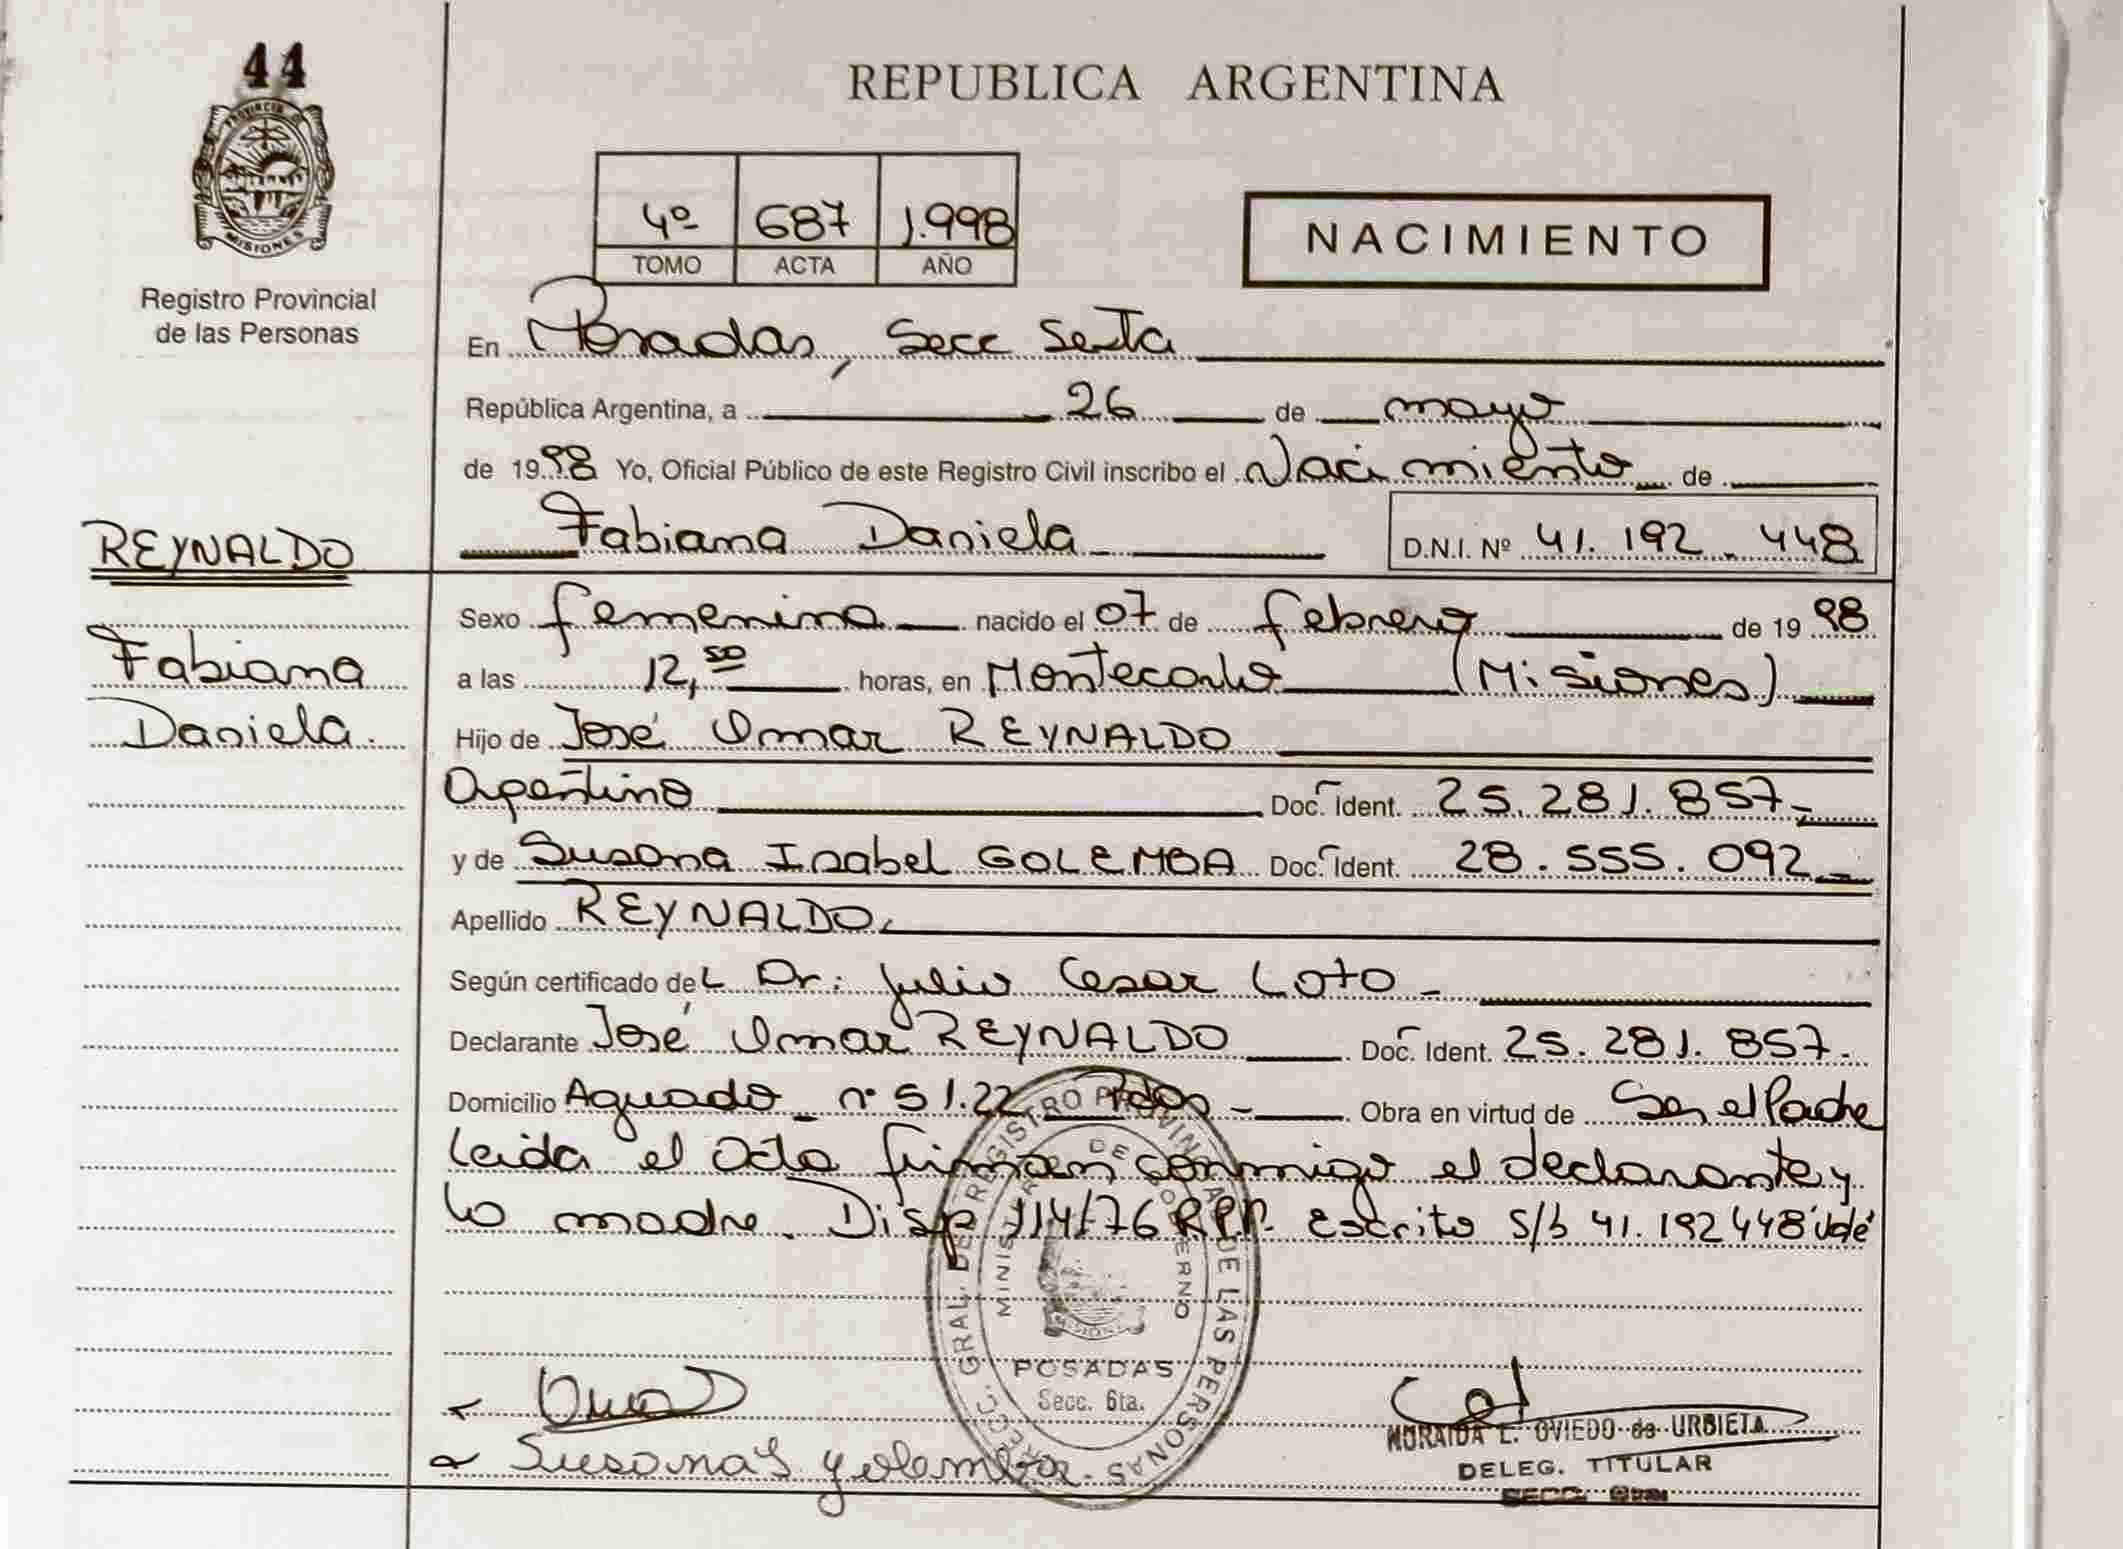 44
PROVINCIA DE
MISIONES
Registro Provincial
de las Personas
REPUBLICA ARGENTINA
4º 687 1.998
TOMO ACTA AÑO
NACIMIENTO
En Posadas, Secc Sexta
República Argentina, a 26 de mayo
de 1998 Yo, Oficial Público de este Registro Civil inscribo el Nacimiento de
Fabiana Daniela D.N.I. Nº 41.192.448
REYNALDO
Fabiana
Daniela.
Sexo femenino nacido el 07 de febrero de 1998
a las 12,50 horas, en Montecarlo (Misiones)
Hijo de José Omar REYNALDO
Argentino Doc. Ident. 25.281.857-
y de Susana Isabel GOLEMBA Doc. Ident. 28.555.092-
Apellido REYNALDO.
Según certificado del Dr: Julio Cesar LOTO -
Declarante José Omar REYNALDO Doc. Ident. 25.281.857.
Domicilio Aguado - nº 5122 Pdas - Obra en virtud de Ser el Padre
Leida el acta firman conmigo el declarante y
la madre. Disp 114/76 R.P.P. Escrito s/b 41.192448 Vale
DIRECC. GRAL. DEL REGISTRO PROVINCIAL DE LAS PERSONAS
MINISTERIO DE GOBIERNO
MISIONES
POSADAS
Secc. 6ta.
Susana I
MORAIDA L. OVIEDO de URBIETA
DELEG. TITULAR
SECC.